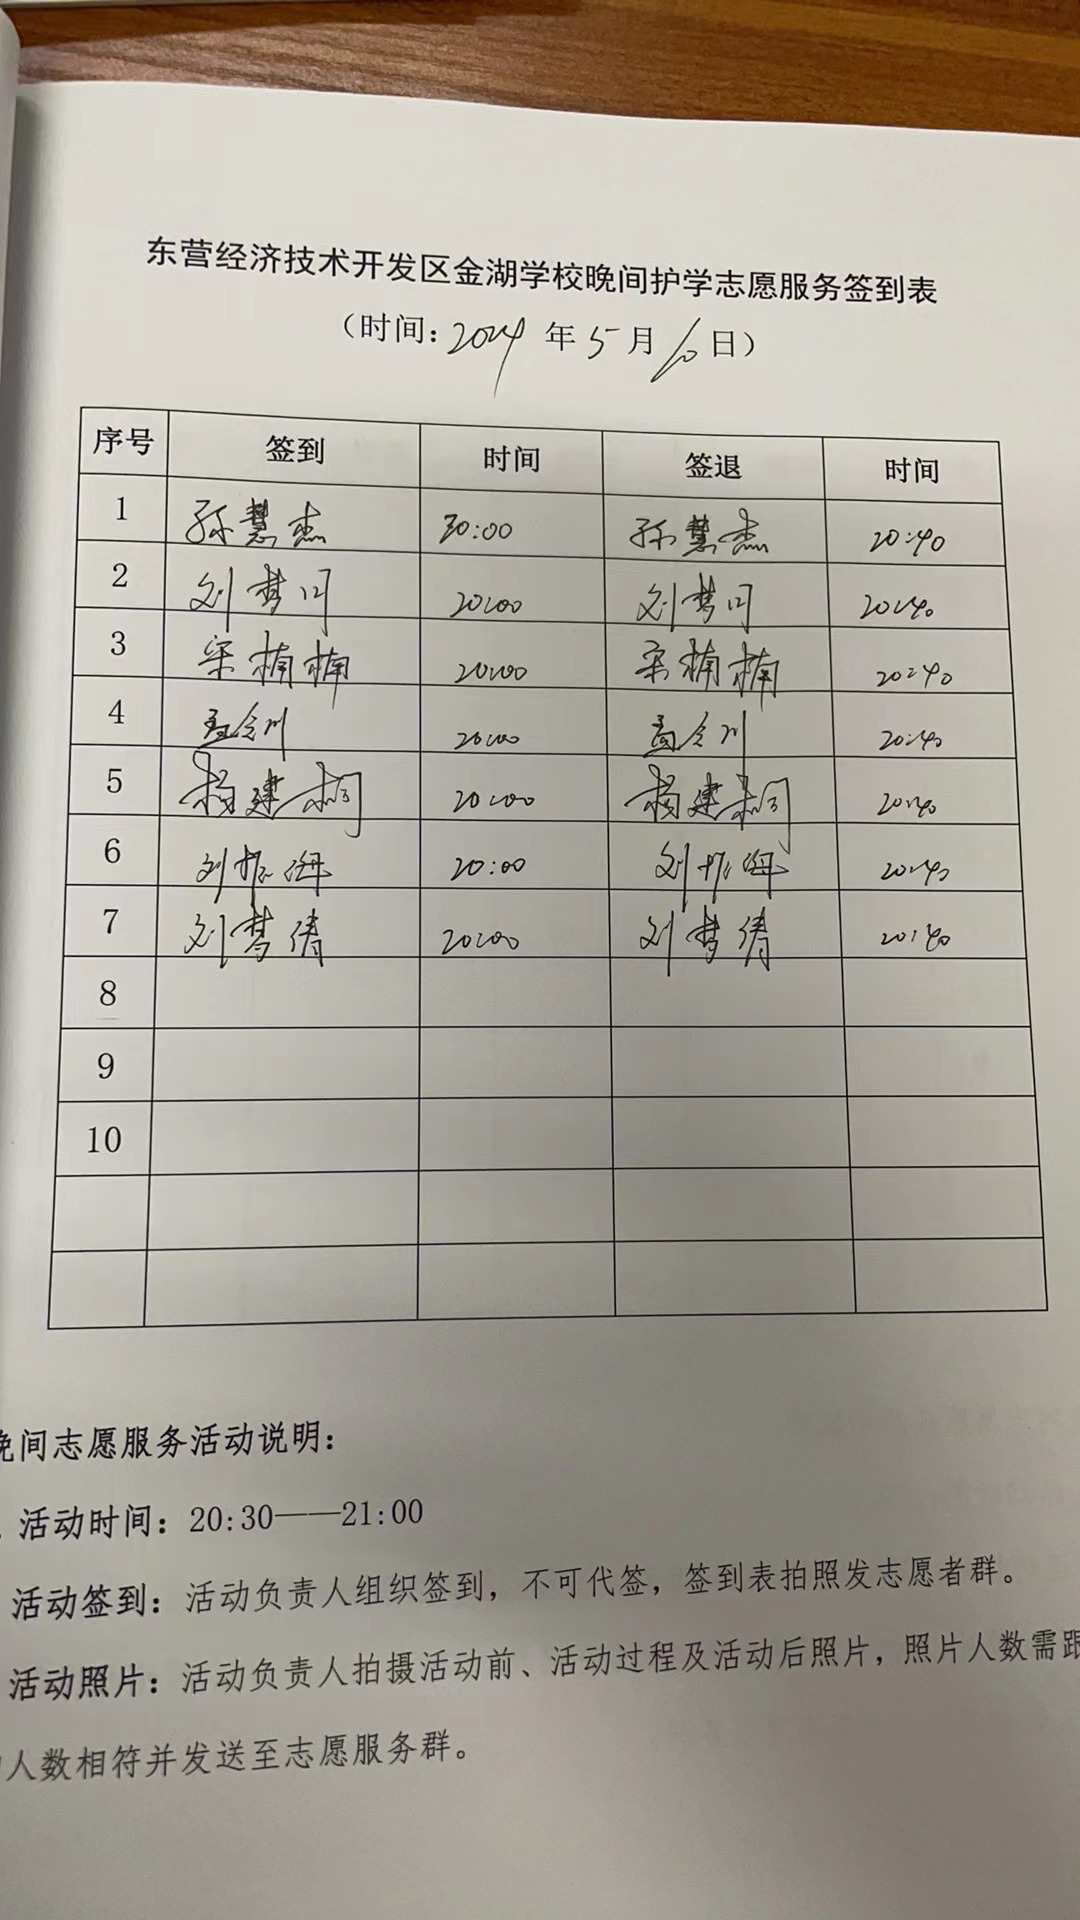 东营经济技术开发区金湖学校晚间护学志愿服务签到表
（时间：2024年5月10日）
序号 签到 时间 签退 时间
1 孙慧杰 20:00 孙慧杰 20:40
2 刘梦 20:00 刘梦 20:40
3 宋楠楠 20:00 宋楠楠 20:40
4 孟令川 20:00 孟令川 20:40
5 杨建桐 20:00 杨建桐 20:40
6 刘振海 20:00 刘振海 20:40
7 刘梦倩 20:00 刘梦倩 20:40
8
9
10
晚间志愿服务活动说明：
活动时间：20:30——21:00
活动签到：活动负责人组织签到，不可代签，签到表拍照发志愿者群。
活动照片：活动负责人拍摄活动前、活动过程及活动后照片，照片人数需跟
人数相符并发送至志愿服务群。